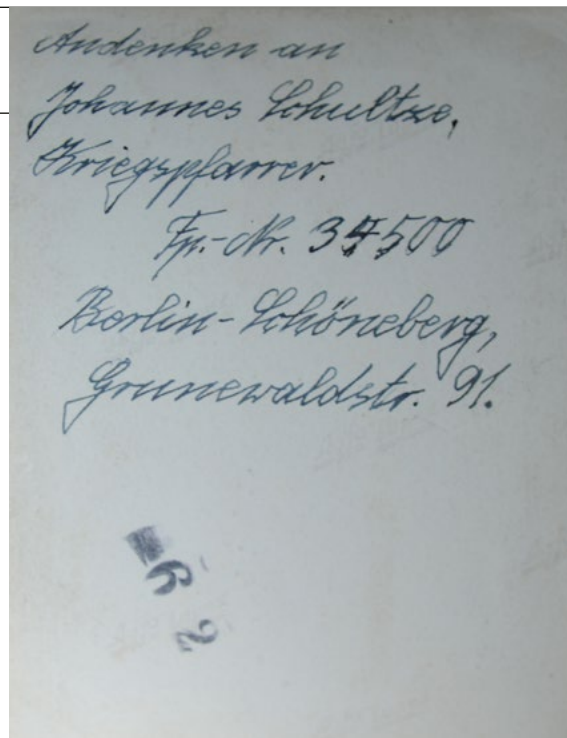 Andenken an
Johannes Schultze,
Kriegspfarrer.
Fp.-Nr. 37500
Berlin-Schöneberg,
Grunewaldstr. 91.
62